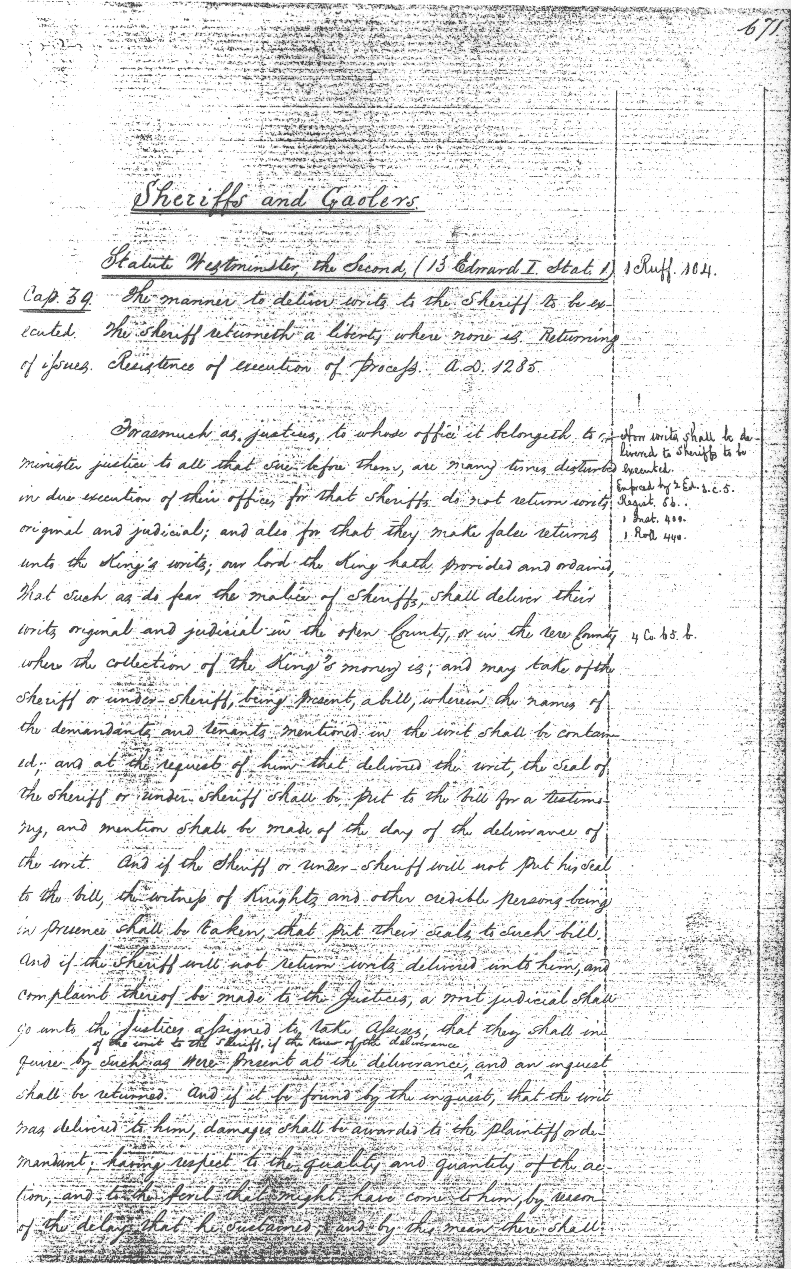 671
Sheriffs and Gaolers
Statute Westminster, the Second, (13 Edward I. Stat 1) 1 Ruff. 104.
Cap. 39. The manner to deliver writs to the Sheriff to be ex-
ecuted. The Sheriff returneth a liberty where none is. Returning
of issues. Resistence of execution of process. A.D. 1285.
Forasmuch as justices, to whose office it belongeth to
minister justice to all that sue before them, are many times disturbed
in due execution of their office, for that Sheriffs do not return writs
original and judicial; and also for that they make false returns
unto the King's writs; our lord the King hath provided and ordained,
That such as do fear the malice of Sheriffs, shall deliver their
writs original and judicial in the open County, or in the rere County
where the collection of the King's money is; and may take of the
Sheriff or under-Sheriff, being present, a bill, wherein the names of
the demandants and tenants mentioned in the writ shall be contain-
ed; and at the request of him that delivered the writ, the seal of
the Sheriff or under-Sheriff shall be put to the bill for a testimo-
ny, and mention shall be made of the day of the deliverance of
the writ. And if the Sheriff or under-Sheriff will not put his seal
to the bill, the witness of Knights and other credible persons being
in presence shall be taken, that put their seals to such bill.
And if the Sheriff will not return writs delivered unto him, and
complaint thereof be made to the Justices, a writ judicial shall
go unto the Justices assigned to take Assizes, that they shall in-
of the writ to the Sheriff, if the knew of the deliverance
quire by such as were present at the deliverance, and an inquest
shall be returned. And if it be found by the inquest, that the writ
was delivered to him, damages shall be awarded to the plaintiff or de-
mandant; having respect to the quality and quantity of the ac-
tion, and to the peril that might have come to him, by reason
of the delay that he sustained; and by this mean there shall
How writs shall be de-
livered to Sheriffs to be
executed.
Enforced by 2 Ed. 3. c. 5.
Regist. 86.
1 Inst. 400.
1 Roll 440.
4 Co. 65. b.